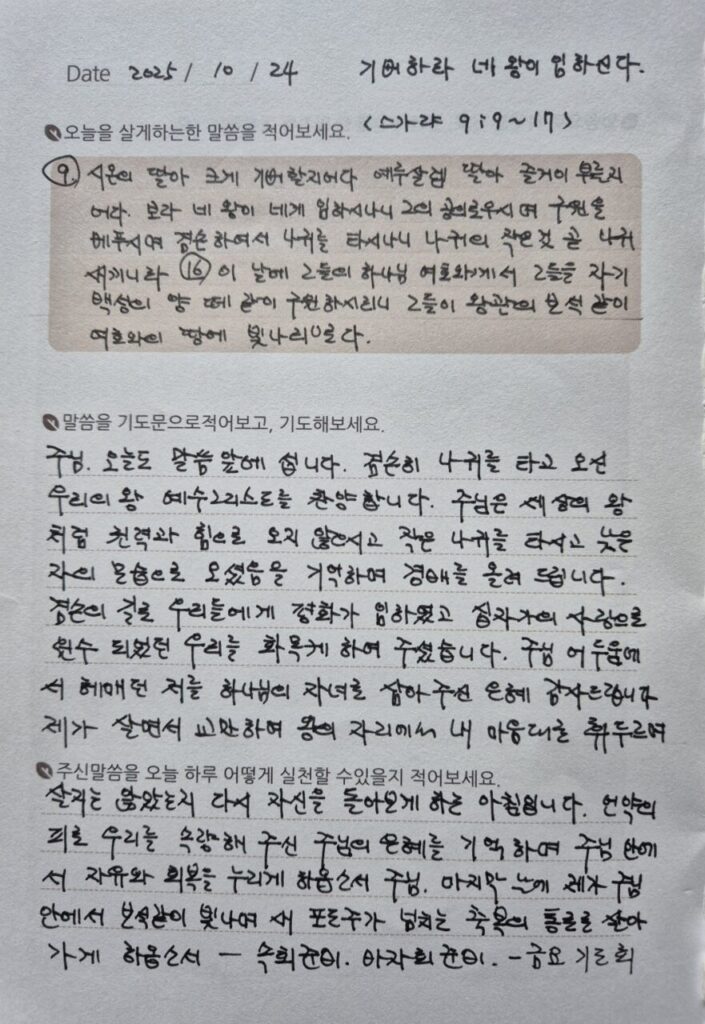 Date 2025 / 10 / 24 기뻐하라 네 왕이 임하신다.
오늘을 살게하는한 말씀을 적어보세요. <스가랴 9:9~17>
⑨ 시온의 딸아 크게 기뻐할지어다 예루살렘 딸아 즐거이 부를지
어다. 보라 네 왕이 네게 임하시나니 그의 공의로우시며 구원을
베푸시며 겸손하여서 나귀를 타시나니 나귀의 작은것 곧 나귀
새끼니라 ⑯ 이 날에 그들의 하나님 여호와께서 그들을 자기
백성의 양 떼 같이 구원하시리니 그들이 왕관의 보석 같이
여호와의 땅에 빛나리로다.
말씀을 기도문으로적어보고, 기도해보세요.
주님. 오늘도 말씀 앞에 섭니다. 겸손히 나귀를 타고 오신
우리의 왕 예수그리스도를 찬양합니다. 주님은 세상의 왕
처럼 권력과 힘으로 오지 않으시고 작은 나귀를 타시고 낮은
자의 모습으로 오셨음을 기억하며 경배를 올려 드립니다.
겸손의 길로 우리들에게 평화가 임하였고 십자가의 사랑으로
원수 되었던 우리를 화목케 하여 주셨습니다. 주님 어두움에
서 헤매던 저를 하나님의 자녀로 삼아주신 은혜 감사드립니다
제가 살면서 교만하여 왕의 자리에서 내 마음대로 휘두르며
주신말씀을 오늘 하루 어떻게 실천할 수있을지 적어보세요.
살지는 않았는지 다시 자신을 돌아보게 하는 아침입니다. 언약의
피로 우리를 속량해 주신 주님의 은혜를 기억하며 주님 안에
서 자유와 회복을 누리게 하옵소서 주님. 마지막 날에 제가 주님
안에서 보석같이 빛나며 새 포도주가 넘치는 축복의 통로로 살아
가게 하옵소서 — 속회준비. 바자회준비. - 금요 기도회